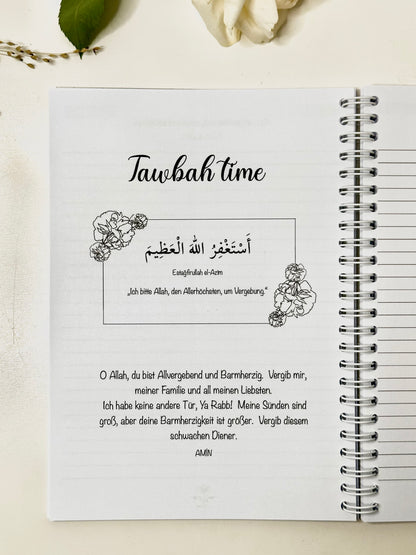 Tawbah time
أَسْتَغْفِرُ اللهَ الْعَظِيمَ
Estağfirullah el-Azim
„Ich bitte Allah, den Allerhöchsten, um Vergebung.“
O Allah, du bist Allvergebend und Barmherzig. Vergib mir,
meiner Familie und all meinen Liebsten.
Ich habe keine andere Tür, Ya Rabb! Meine Sünden sind
groß, aber deine Barmherzigkeit ist größer. Vergib diesem
schwachen Diener.
AMİN